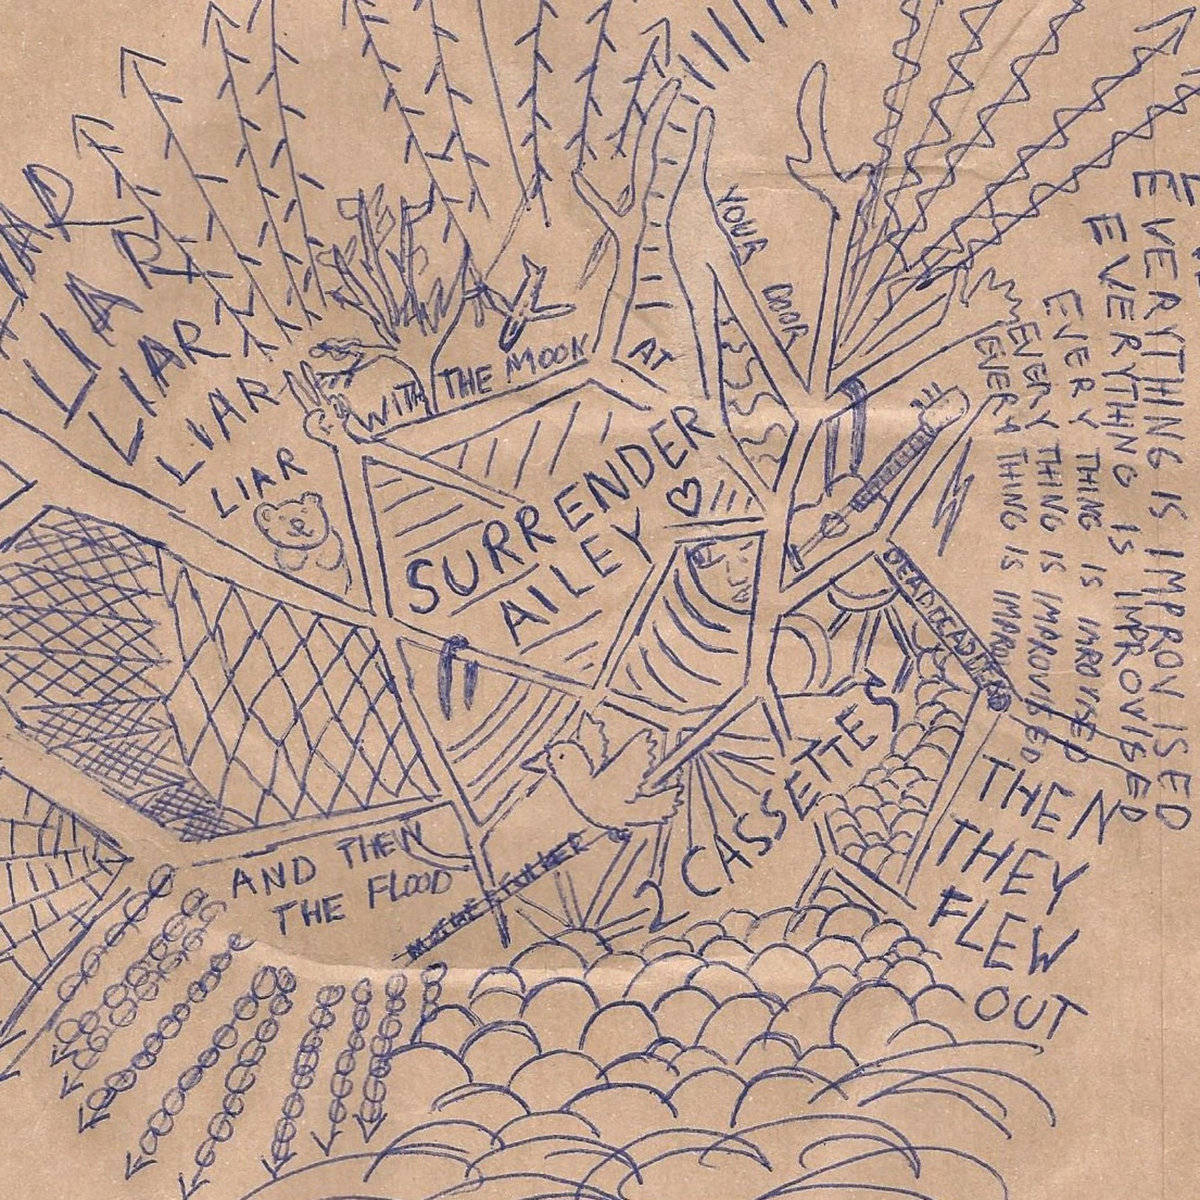 LIAR
LIAR
LIAR
LIAR
WITH THE MOON
AT
YOUR DOOR
SURRENDER
AILEY
EVERYTHING IS IMPROVISED
EVERYTHING IS IMPROVISED
EVERY THING IS IMPROVISED
EVERY THING IS IMPROVISED
EVERY THING IS
THEN
THEY
FLEW
OUT
2 CASSETTES
AND THEN
THE FLOOD